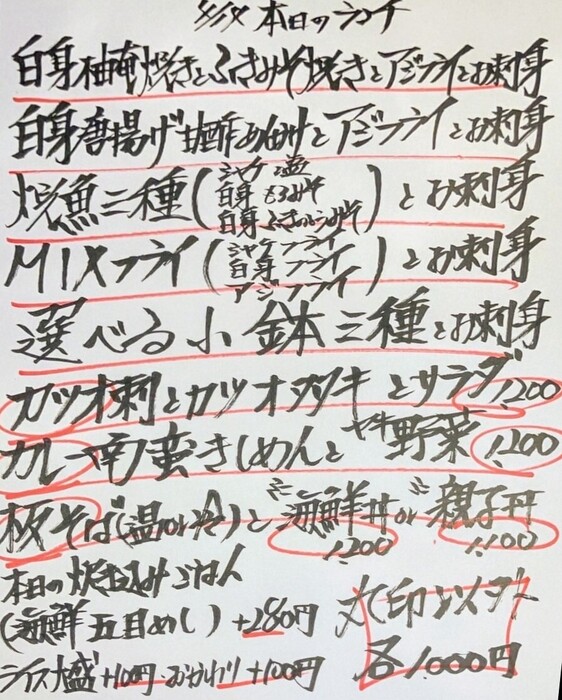 本日のランチ
白身柚庵焼きとふきみそ焼きとアジフライとお刺身
白身唐揚げ甘酢あんかけとアジフライとお刺身
焼魚三種(シャケ塩 白身もろみそ 白身ふきのとうみそ)とお刺身
MIXフライ(シャケフライ 白身フライ アジフライ)とお刺身
選べる小鉢三種とお刺身
カツオ刺とカツオタタキとサラダ 1,200
カレー南蛮きしめんとヤキ野菜 1,200
板そば(温or冷)とミニ海鮮丼orミニ親子丼
1,200 1,100
本日の炊き込みごはん
(海鮮五目めし)+280円
ライス大盛+100円・おかわり+100円
丸印以外
各1000円